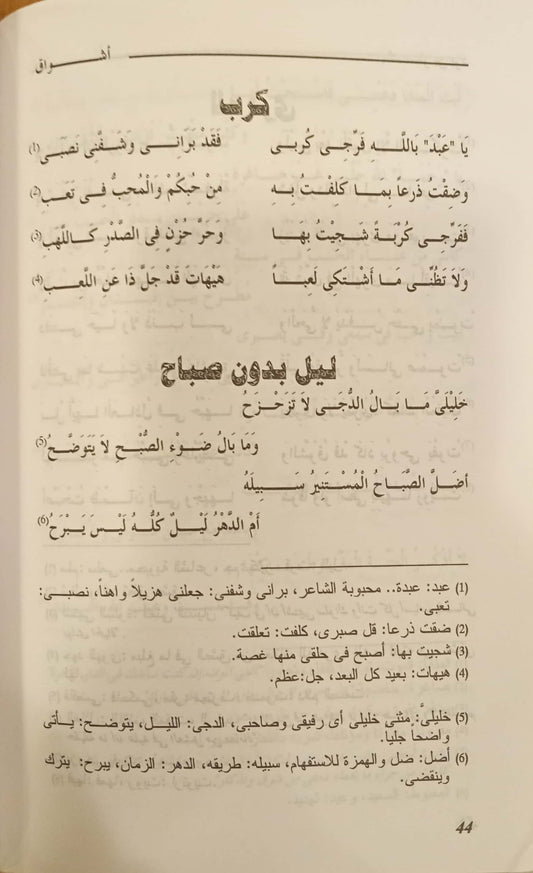 أشـــواق
كرب
يَا "عَبْدَ" بَاللَّـــهِ فَرِّجِـى كُربـى فَقَدْ بَرَانِــى وَشَفَّنِى نَصَبِى (1)
وَضِقْتُ ذَرعاً بِمَـا كَلِفْتُ بِـهِ مِنْ حُبِكُمْ وَالْمُحِبُّ فِـى تَعَبِ (2)
فَفَرِّجِـى كُرْبَـةً شَجِيْتُ بِهَـا وَحَرَّ حُزْنٍ فِى الصَّدْرِ كَـاللَّهَبِ (3)
وَلاَ تَظُنِّـى مَـا أَشْتَكِى لَعِبـاً هَيْهَاتَ قَدْ جَلَّ ذَا عَنِ اللَّعِـبِ (4)
ليل بدون صباح
خَلِيْلَىَّ مَـا بَـالُ الدُّجَـى لاَ تَزَحْزَحُ
وَمَا بَالُ ضَوْءِ الصُّبْحِ لاَ يَتَوَضَّحُ (5)
أضَلَّ الصَّبَاحُ الْمُسْتَنِيرُ سَـبِيلَهُ
أَمِ الدَّهْرُ لَيْلٌ كُلُّهُ لَيْسَ يَبْرَحُ (6)
(1) عبد: عبدة.. محبوبة الشاعر، برانى وشفنى: جعلنى هزيلاً واهناً، نصبـى:
تعبى.
(2) ضقت ذرعا: قل صبرى، كلفت: تعلقت.
(3) شجيت بها: أصبح فى حلقى منها غصة.
(4) هيهات: بعيد كل البعد، جل:عظم.
(5) خليلىَّ: مثنى خليلى أى رفيقى وصاحبى، الدجى: الليـل، يتوضـح: يـأتى
واضحاً جلياً.
(6) أضل: ضل والهمزة للاستفهام، سبيله: طريقه، الدهر: الزمان، يبرح: يترك
وينقضى.
44